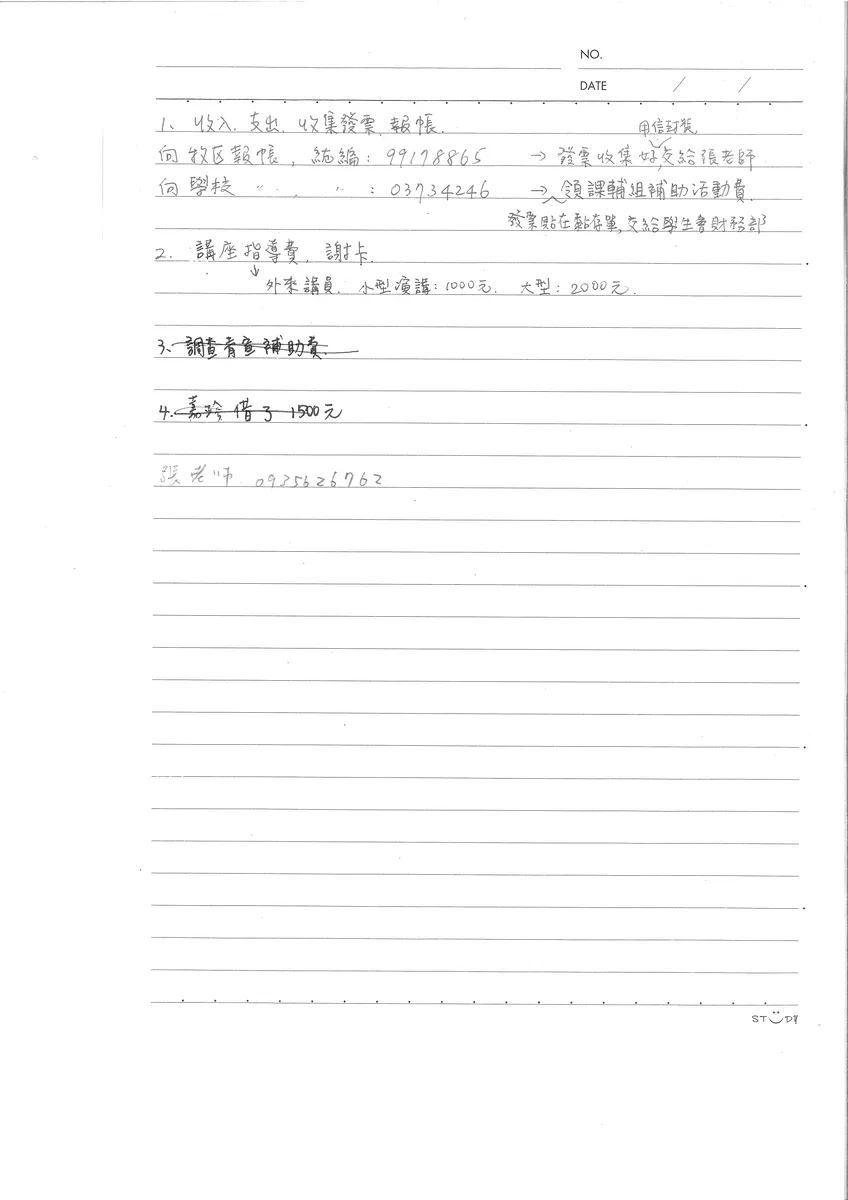 NO.
DATE / /
1、收入、支出、收集發票、報帳.
用信封裝
向牧区報帳, 統編: 99178865 → 發票收集好,交給張老師
向學校 〃 , 〃 : 03734246 → 領課輔組補助活動費.
發票貼在黏存單,交給學生會財務部
2. 講座指導費, 謝卡.
↓
外來講員. 小型演講: 1000元. 大型: 2000元.
3、調查青宣補助費.
4.嘉玲借了1500元
張老師. 0935626762
STUDY